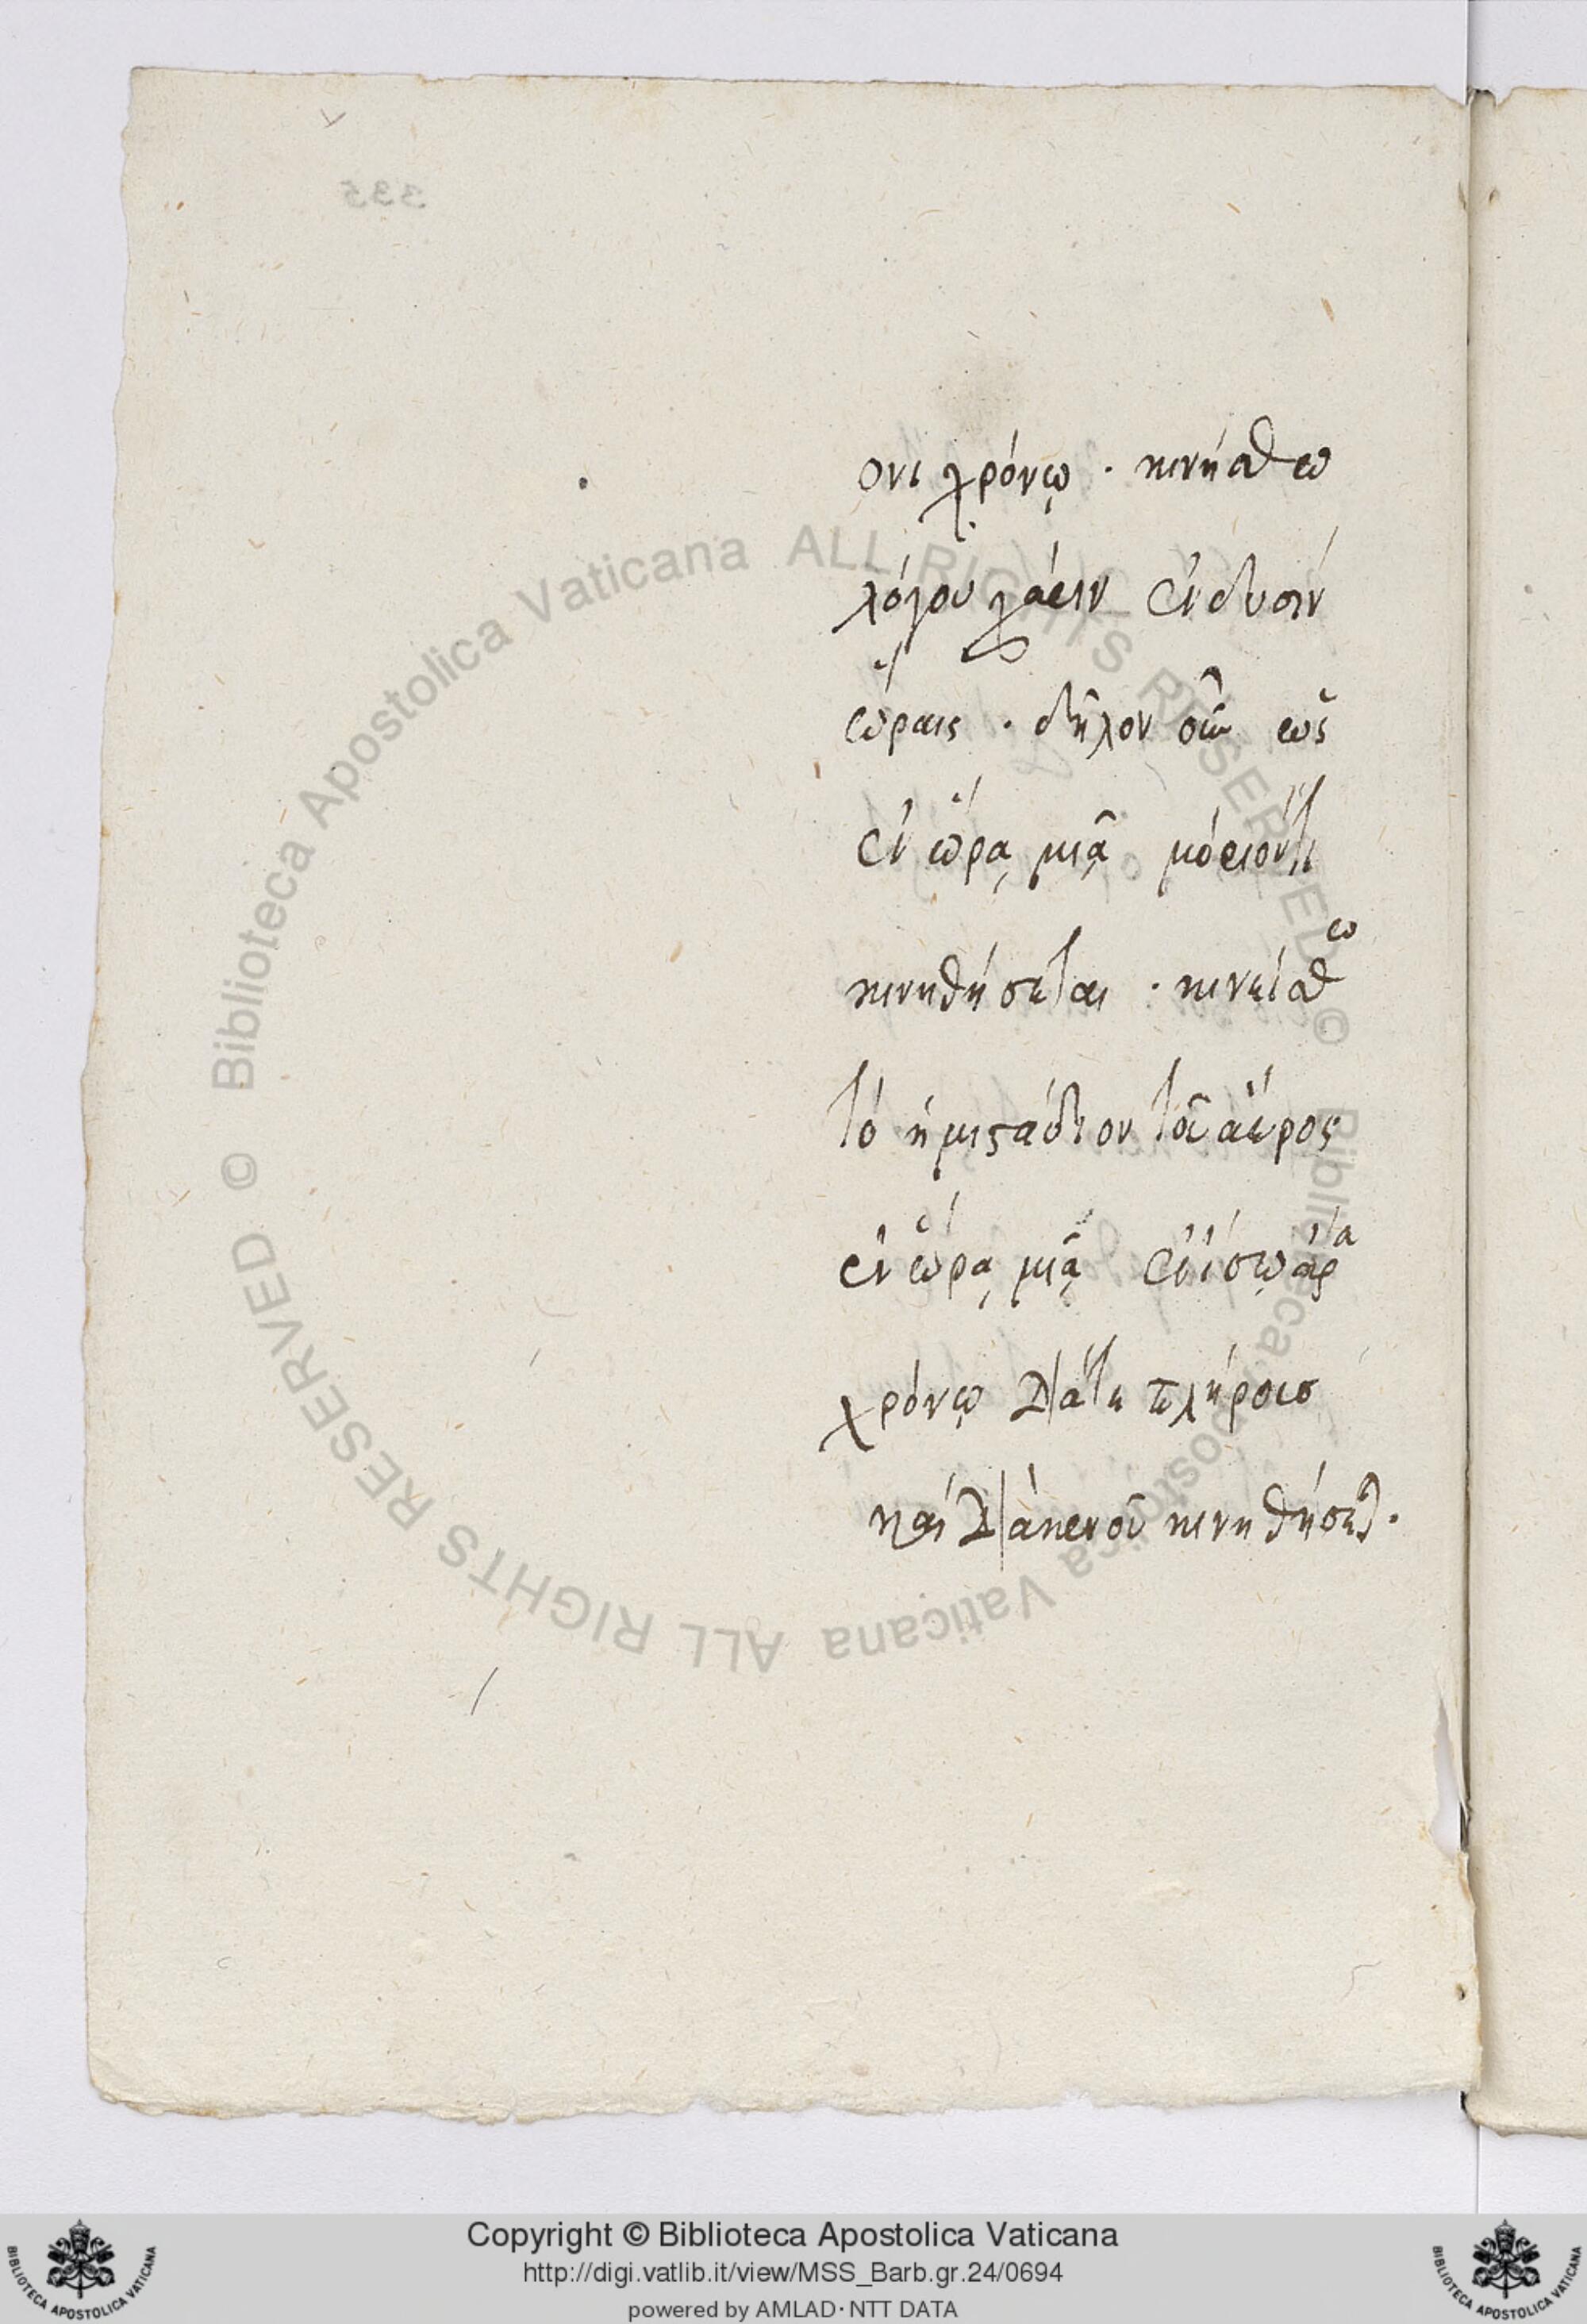 335
ονι χρόνῳ · κινήσθω
λόγου χάριν ἐν δυσὶν
ὥραις · δῆλον οὖν ὡς
ἐν ὥρᾳ μιᾷ μόριόν τι
κινηθήσεται · κινείσθω
τὸ ἡμιστάδιον τοῦ ἀέρος
ἐν ὥρᾳ μιᾷ ἐν ἴσῳ ἄρα
χρόνῳ διά τε πλήρους
καὶ διὰ κενοῦ κινηθήσεται ·
© Biblioteca Apostolica Vaticana ALL RIGHTS RESERVED
© Biblioteca Apostolica Vaticana ALL RIGHTS RESERVED
Copyright © Biblioteca Apostolica Vaticana
http://digi.vatlib.it/view/MSS_Barb.gr.24/0694
powered by AMLAD·NTT DATA
BIBLIOTECA APOSTOLICA VATICANA
BIBLIOTECA APOSTOLICA VATICANA